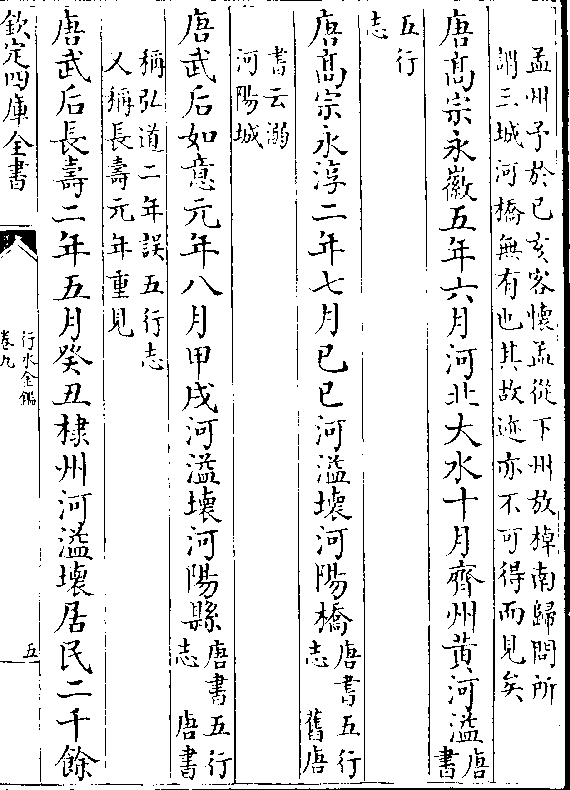 孟州予於己亥客懷孟從下州放棹南歸問所
謂三城河橋無有也其故迹亦不可得而見矣
唐髙宗永徽五年六月河北大水十月齊州黄河溢唐書
五行
志
唐髙宗永淳二年七月己巳河溢壞河陽橋唐書五行志　舊唐
書云溺
河陽城
唐武后如意元年八月甲戌河溢壞河陽縣唐書五行志　唐書
稱弘道二年誤五行志
又稱長壽元年重見
唐武后長壽二年五月癸丑棣州河溢壞居民二千餘
欽定四庫全書
行水金鑑
卷九
五